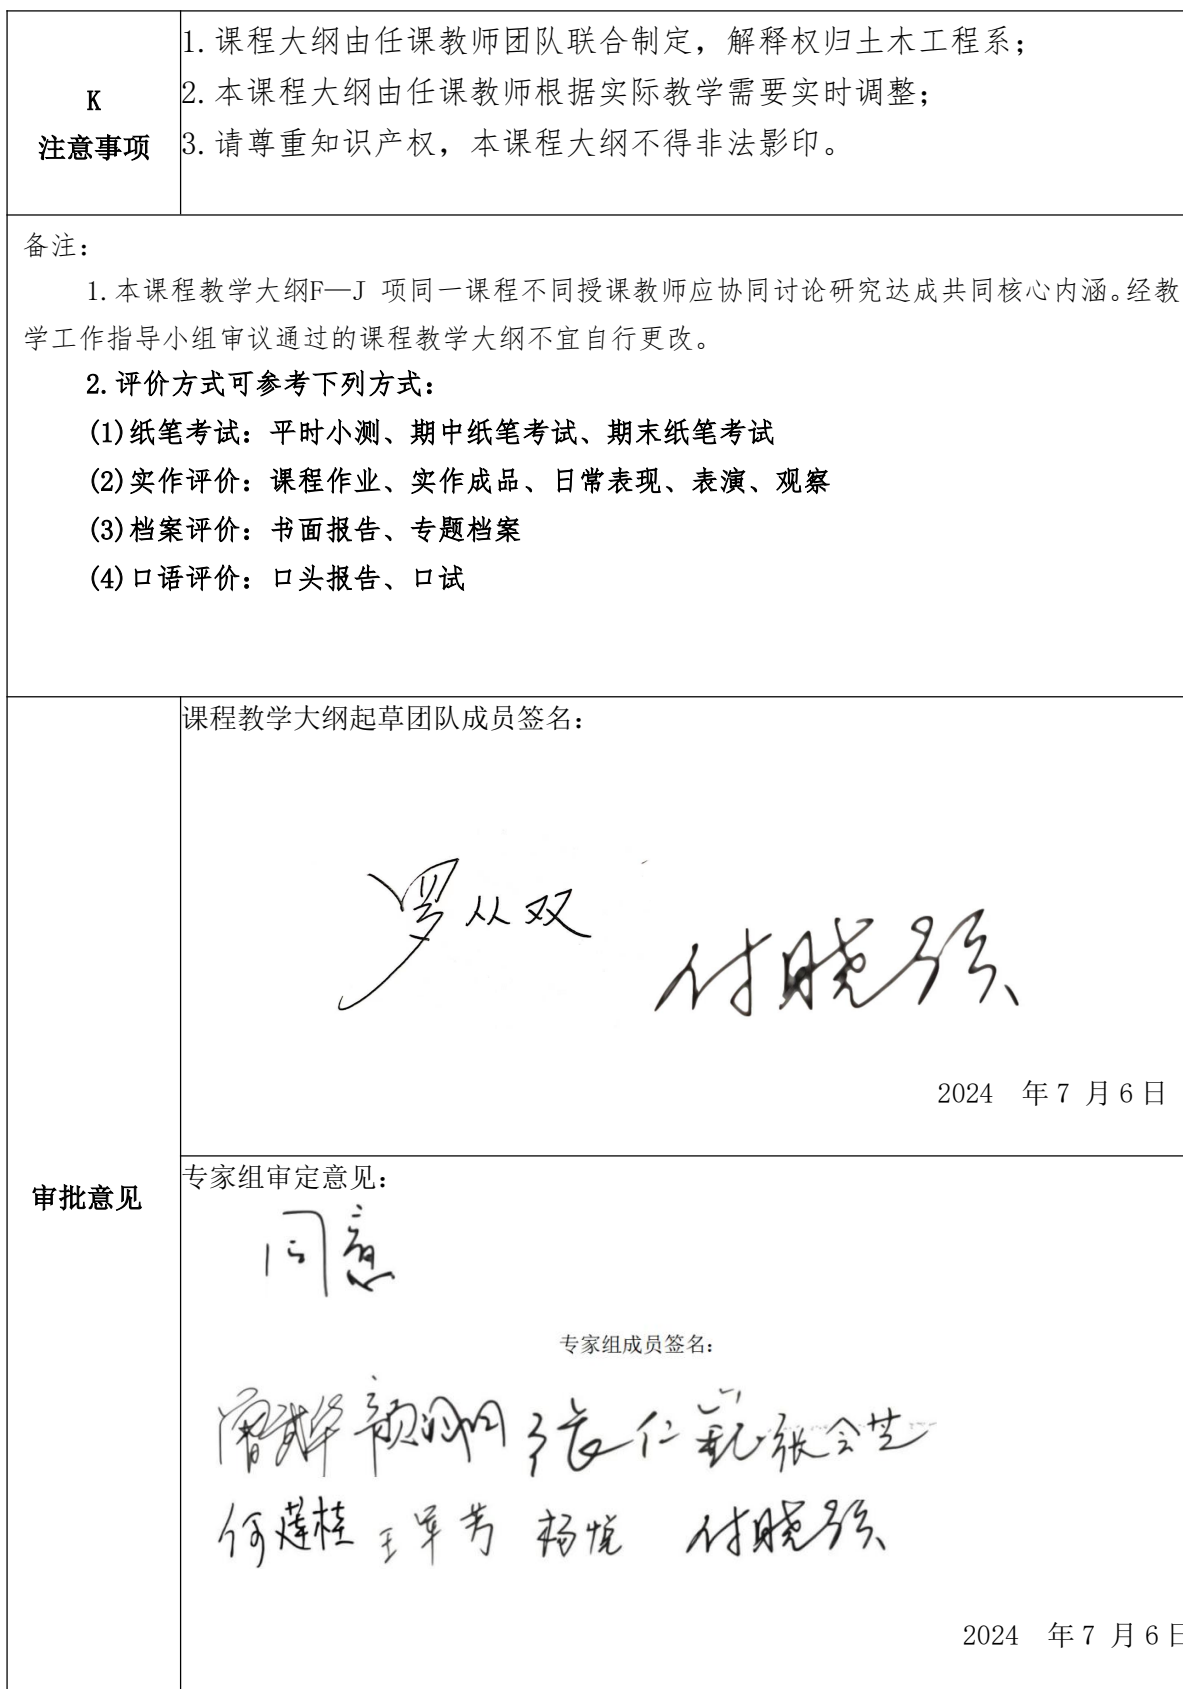 K
注意事项
1.课程大纲由任课教师团队联合制定，解释权归土木工程系；
2.本课程大纲由任课教师根据实际教学需要实时调整；
3.请尊重知识产权，本课程大纲不得非法影印。
备注：
1.本课程教学大纲F—J 项同一课程不同授课教师应协同讨论研究达成共同核心内涵。经教
学工作指导小组审议通过的课程教学大纲不宜自行更改。
2.评价方式可参考下列方式：
(1)纸笔考试：平时小测、期中纸笔考试、期末纸笔考试
(2)实作评价：课程作业、实作成品、日常表现、表演、观察
(3)档案评价：书面报告、专题档案
(4)口语评价：口头报告、口试
审批意见
课程教学大纲起草团队成员签名：
罗从双
付晓强
2024 年 7 月 6 日
专家组审定意见：
同意
专家组成员签名：
曾武华 张仁 张会芝
何莲桂 王军芳 杨悦 付晓强
2024 年 7 月 6 日